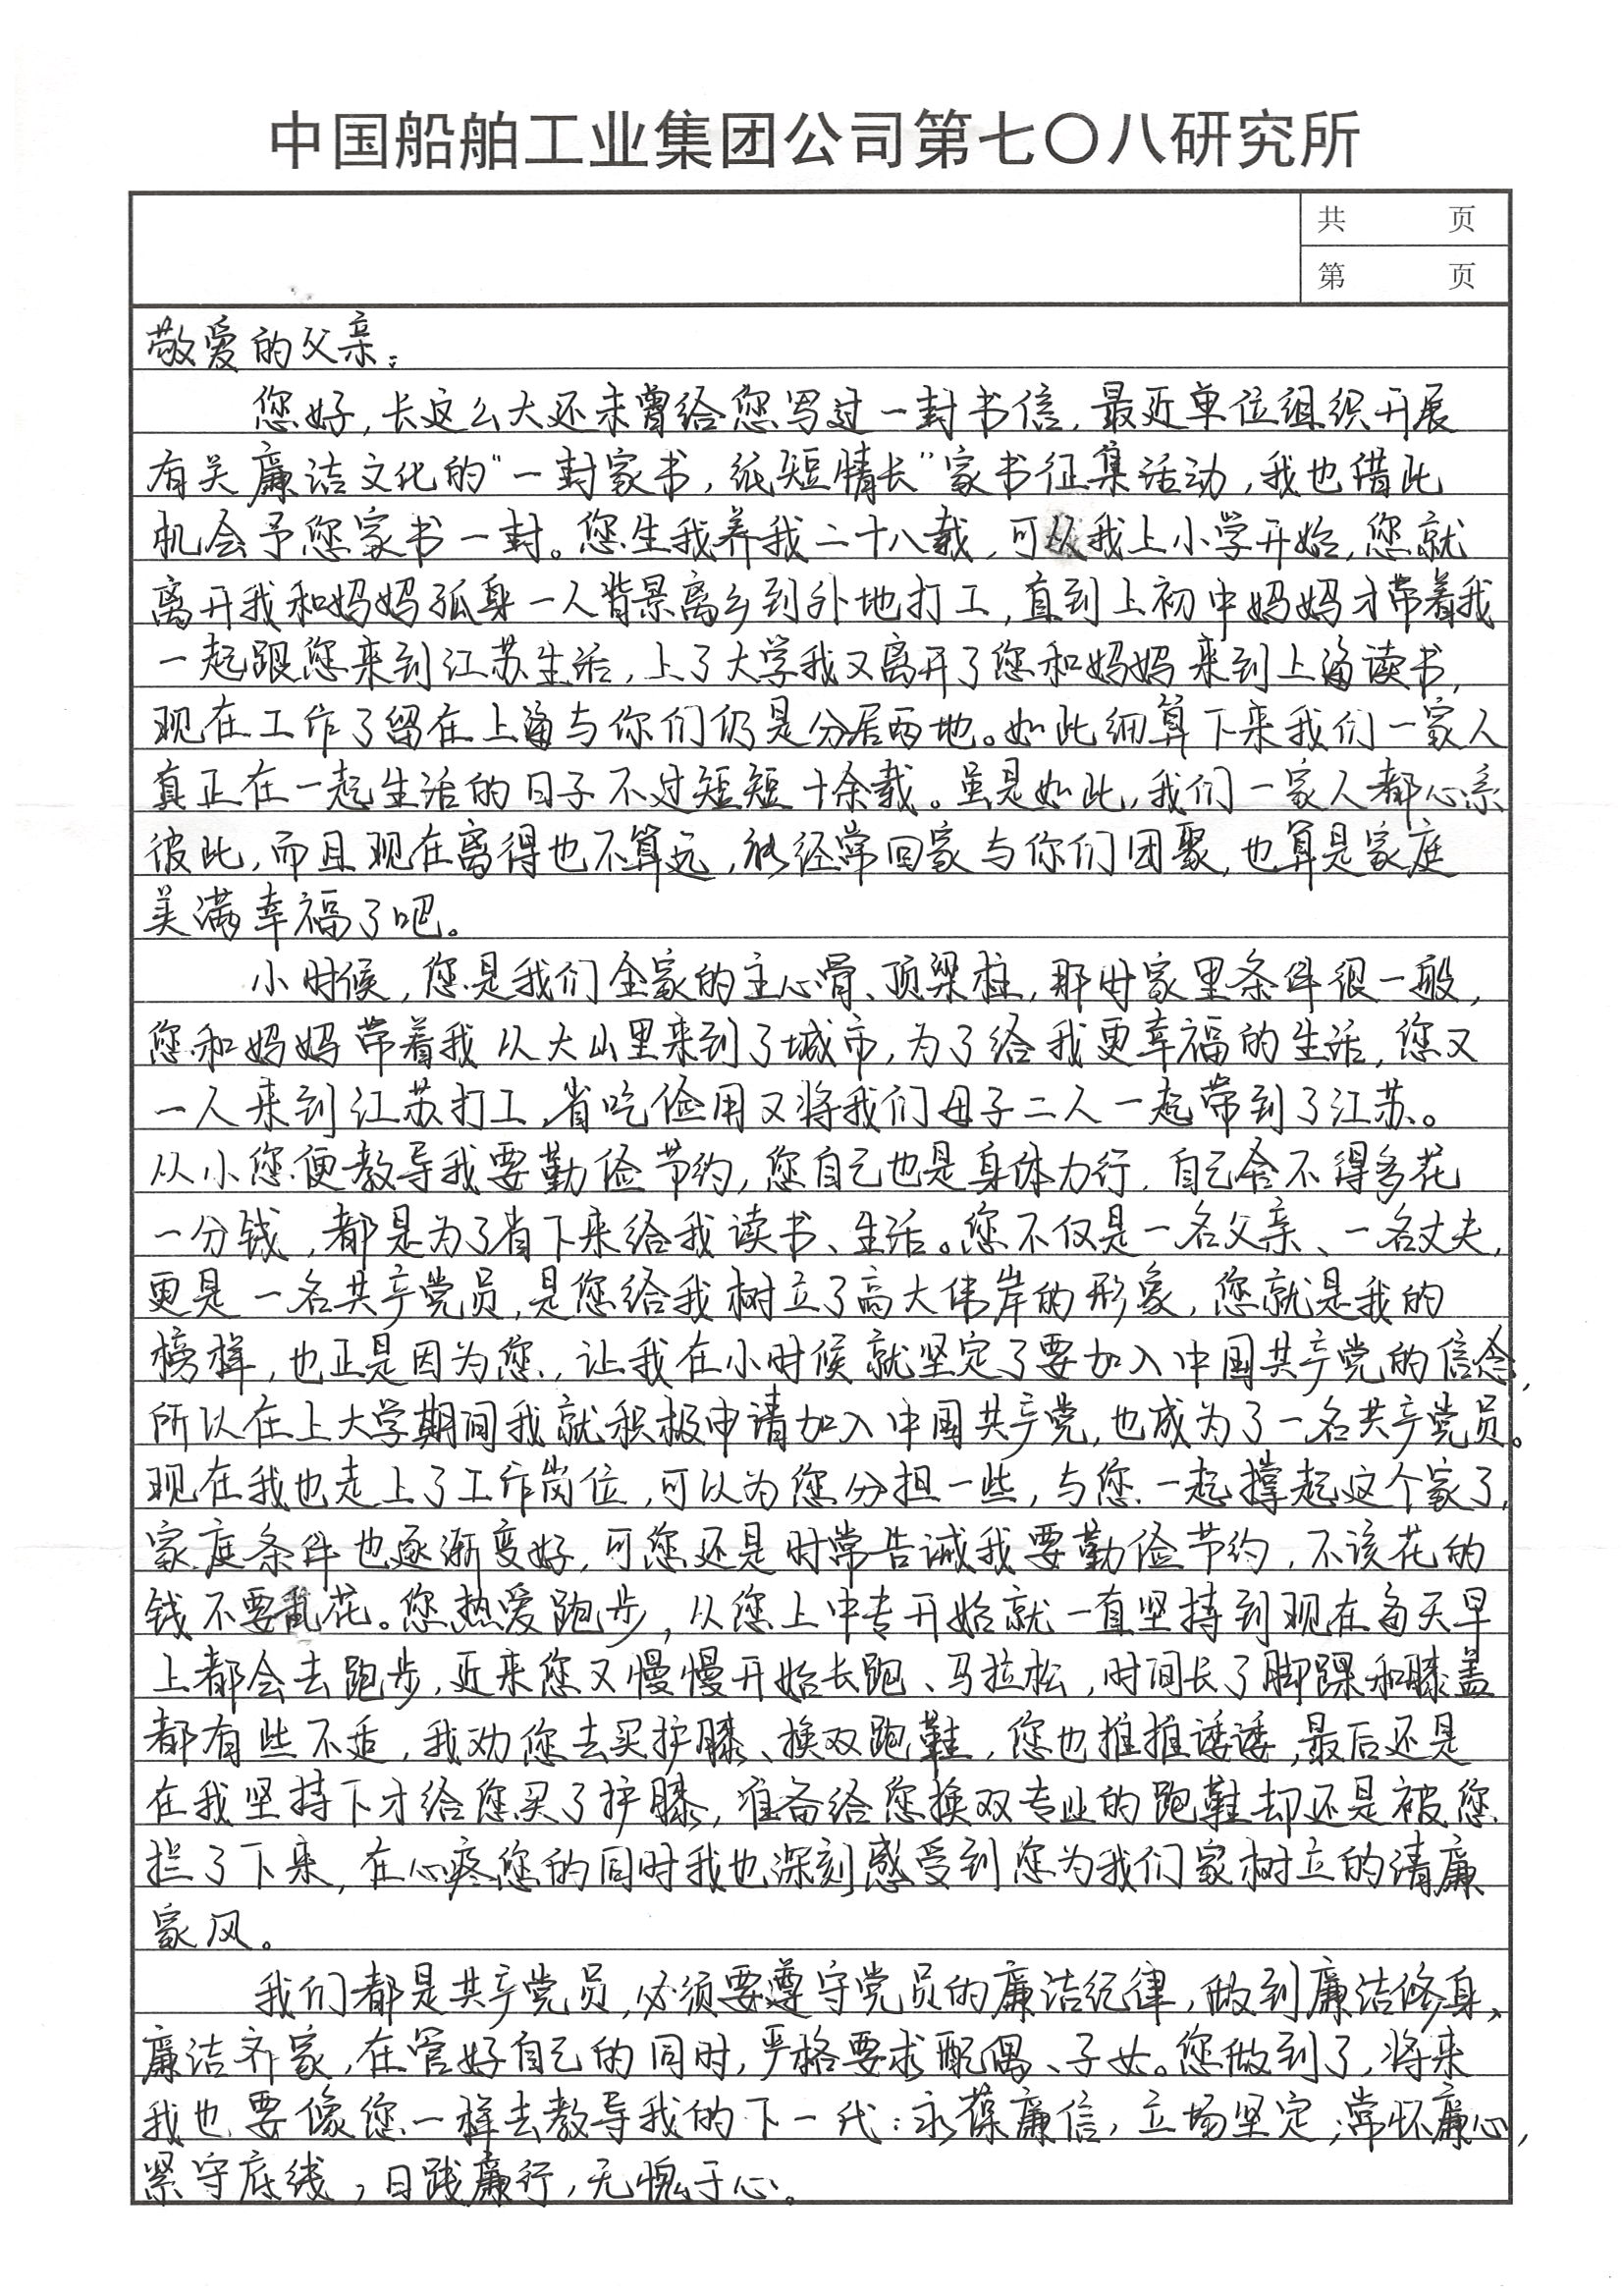 中国船舶工业集团公司第七〇八研究所
共 页
第 页
敬爱的父亲:
您好,长这么大还未曾给您写过一封书信,最近单位组织开展
有关廉洁文化的“一封家书,纸短情长”家书征集活动,我也借此
机会予您家书一封。您生我养我二十八载,可从我上小学开始,您就
离开我和妈妈孤身一人背景离乡到外地打工,直到上初中妈妈才带着我
一起跟您来到江苏生活,上了大学我又离开了您和妈妈来到上海读书,
现在工作了留在上海与你们仍是分居两地。如此细算下来我们一家人
真正在一起生活的日子不过短短十余载。虽是如此,我们一家人都心系
彼此,而且现在离得也不算远,能经常回家与你们团聚,也算是家庭
美满幸福了吧。
小时候,您是我们全家的主心骨、顶梁柱,那时家里条件很一般,
您和妈妈带着我从大山里来到了城市,为了给我更幸福的生活,您又
一人来到江苏打工,省吃俭用又将我们母子二人一起带到了江苏。
从小您便教导我要勤俭节约,您自己也是身体力行,自己舍不得多花
一分钱,都是为了省下来给我读书、生活。您不仅是一名父亲、一名丈夫,
更是一名共产党员,是您给我树立了高大伟岸的形象,您就是我的
榜样,也正是因为您,让我在小时候就坚定了要加入中国共产党的信念,
所以在上大学期间我就积极申请加入中国共产党,也成为了一名共产党员。
现在我也走上了工作岗位,可以为您分担一些,与您一起撑起这个家了,
家庭条件也逐渐变好,可您还是时常告诫我要勤俭节约,不该花的
钱不要乱花。您热爱跑步,从您上中专开始就一直坚持到现在每天早
上都会去跑步,近来您又慢慢开始长跑、马拉松,时间长了脚踝和膝盖
都有些不适,我劝您去买护膝、换双跑鞋,您也推推诿诿,最后还是
在我坚持下才给您买了护膝,准备给您换双专业的跑鞋却还是被您
拦了下来,在心疼您的同时我也深刻感受到您为我们家树立的清廉
家风。
我们都是共产党员,必须要遵守党员的廉洁纪律,做到廉洁修身、
廉洁齐家,在管好自己的同时,严格要求配偶、子女。您做到了,将来
我也要像您一样去教导我的下一代:永葆廉信,立场坚定;常怀廉心,
紧守底线,日践廉行,无愧于心。